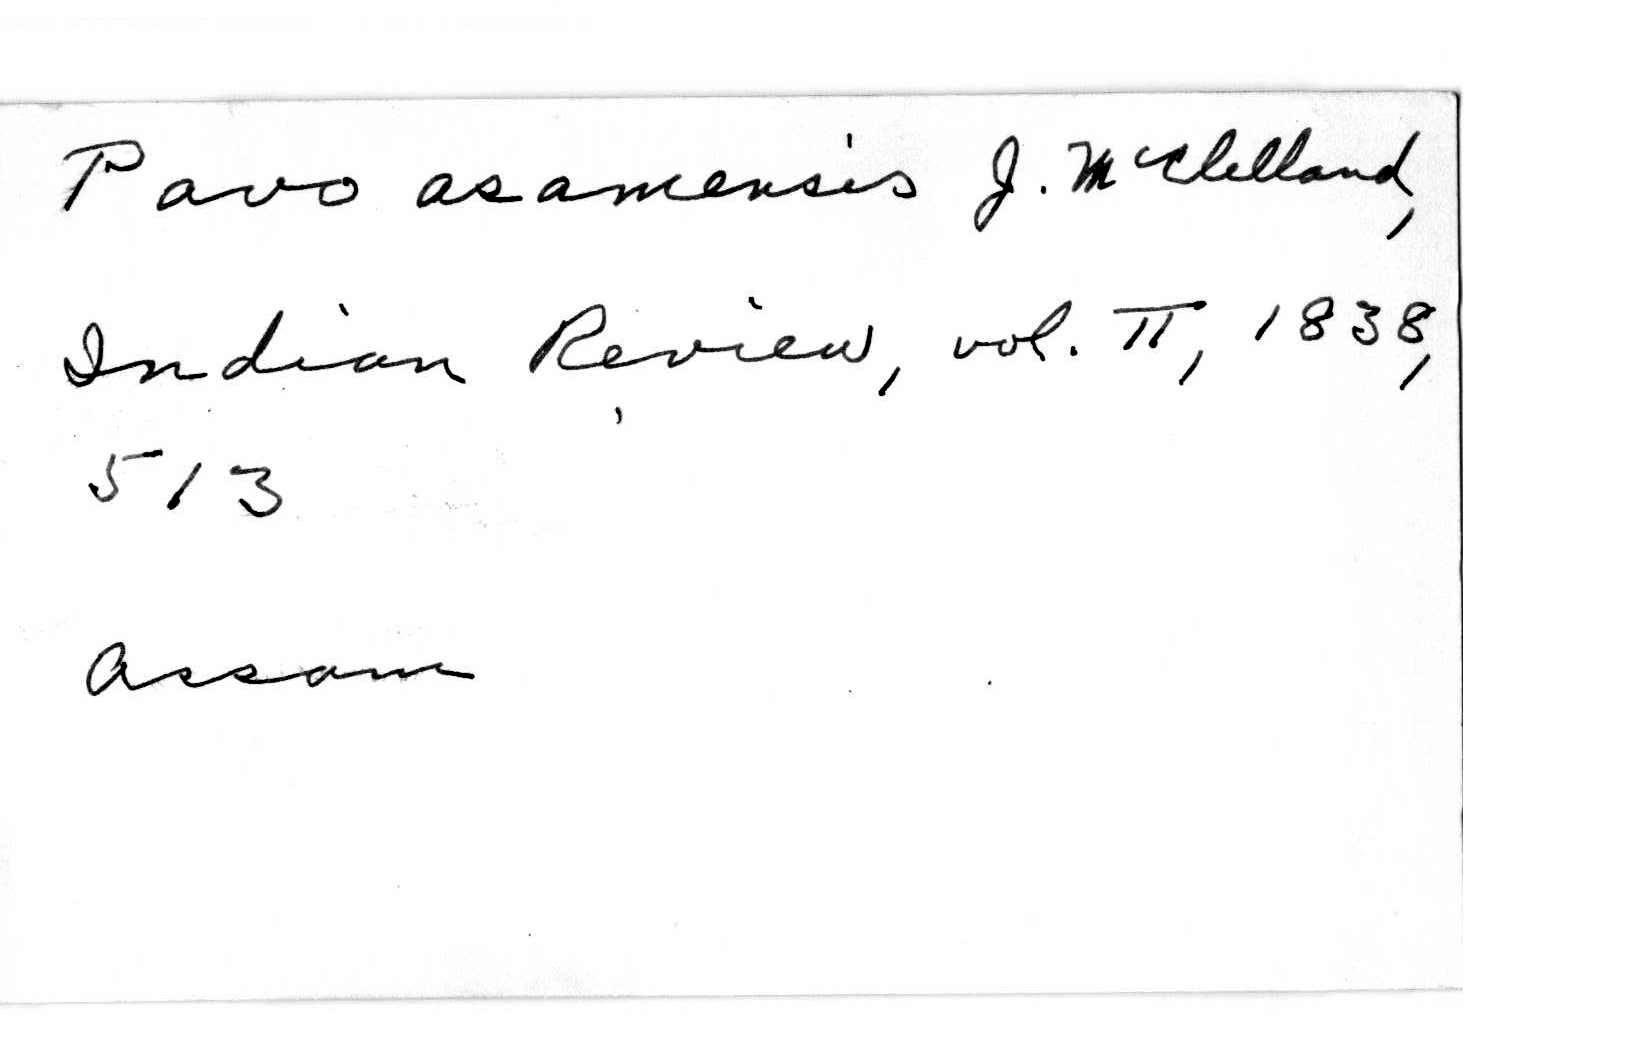 Pavo asamensis J. McClelland,
Indian Review, vol. II, 1838,
513
Assam